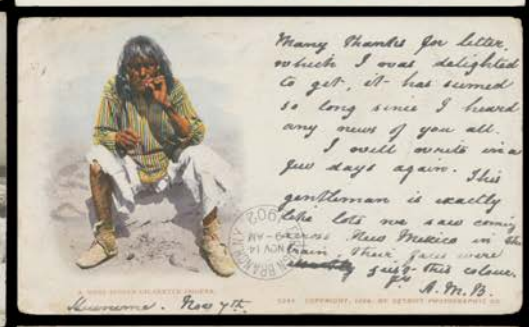 Many thanks for letter,
which I was delighted
to get, it has seemed
so long since I heard
any news of you all.
I will write in a
few days again. This
gentleman is exactly
like lots we saw coming
across New Mexico in the
train, their faces were
just this colour.
A. M. B.
NOV 14
9-AM
1902
A MOKI INDIAN CIGARETTE SMOKER.
COPYRIGHT, 1898, BY DETROIT PHOTOGRAPHIC CO.
Nov 7th.